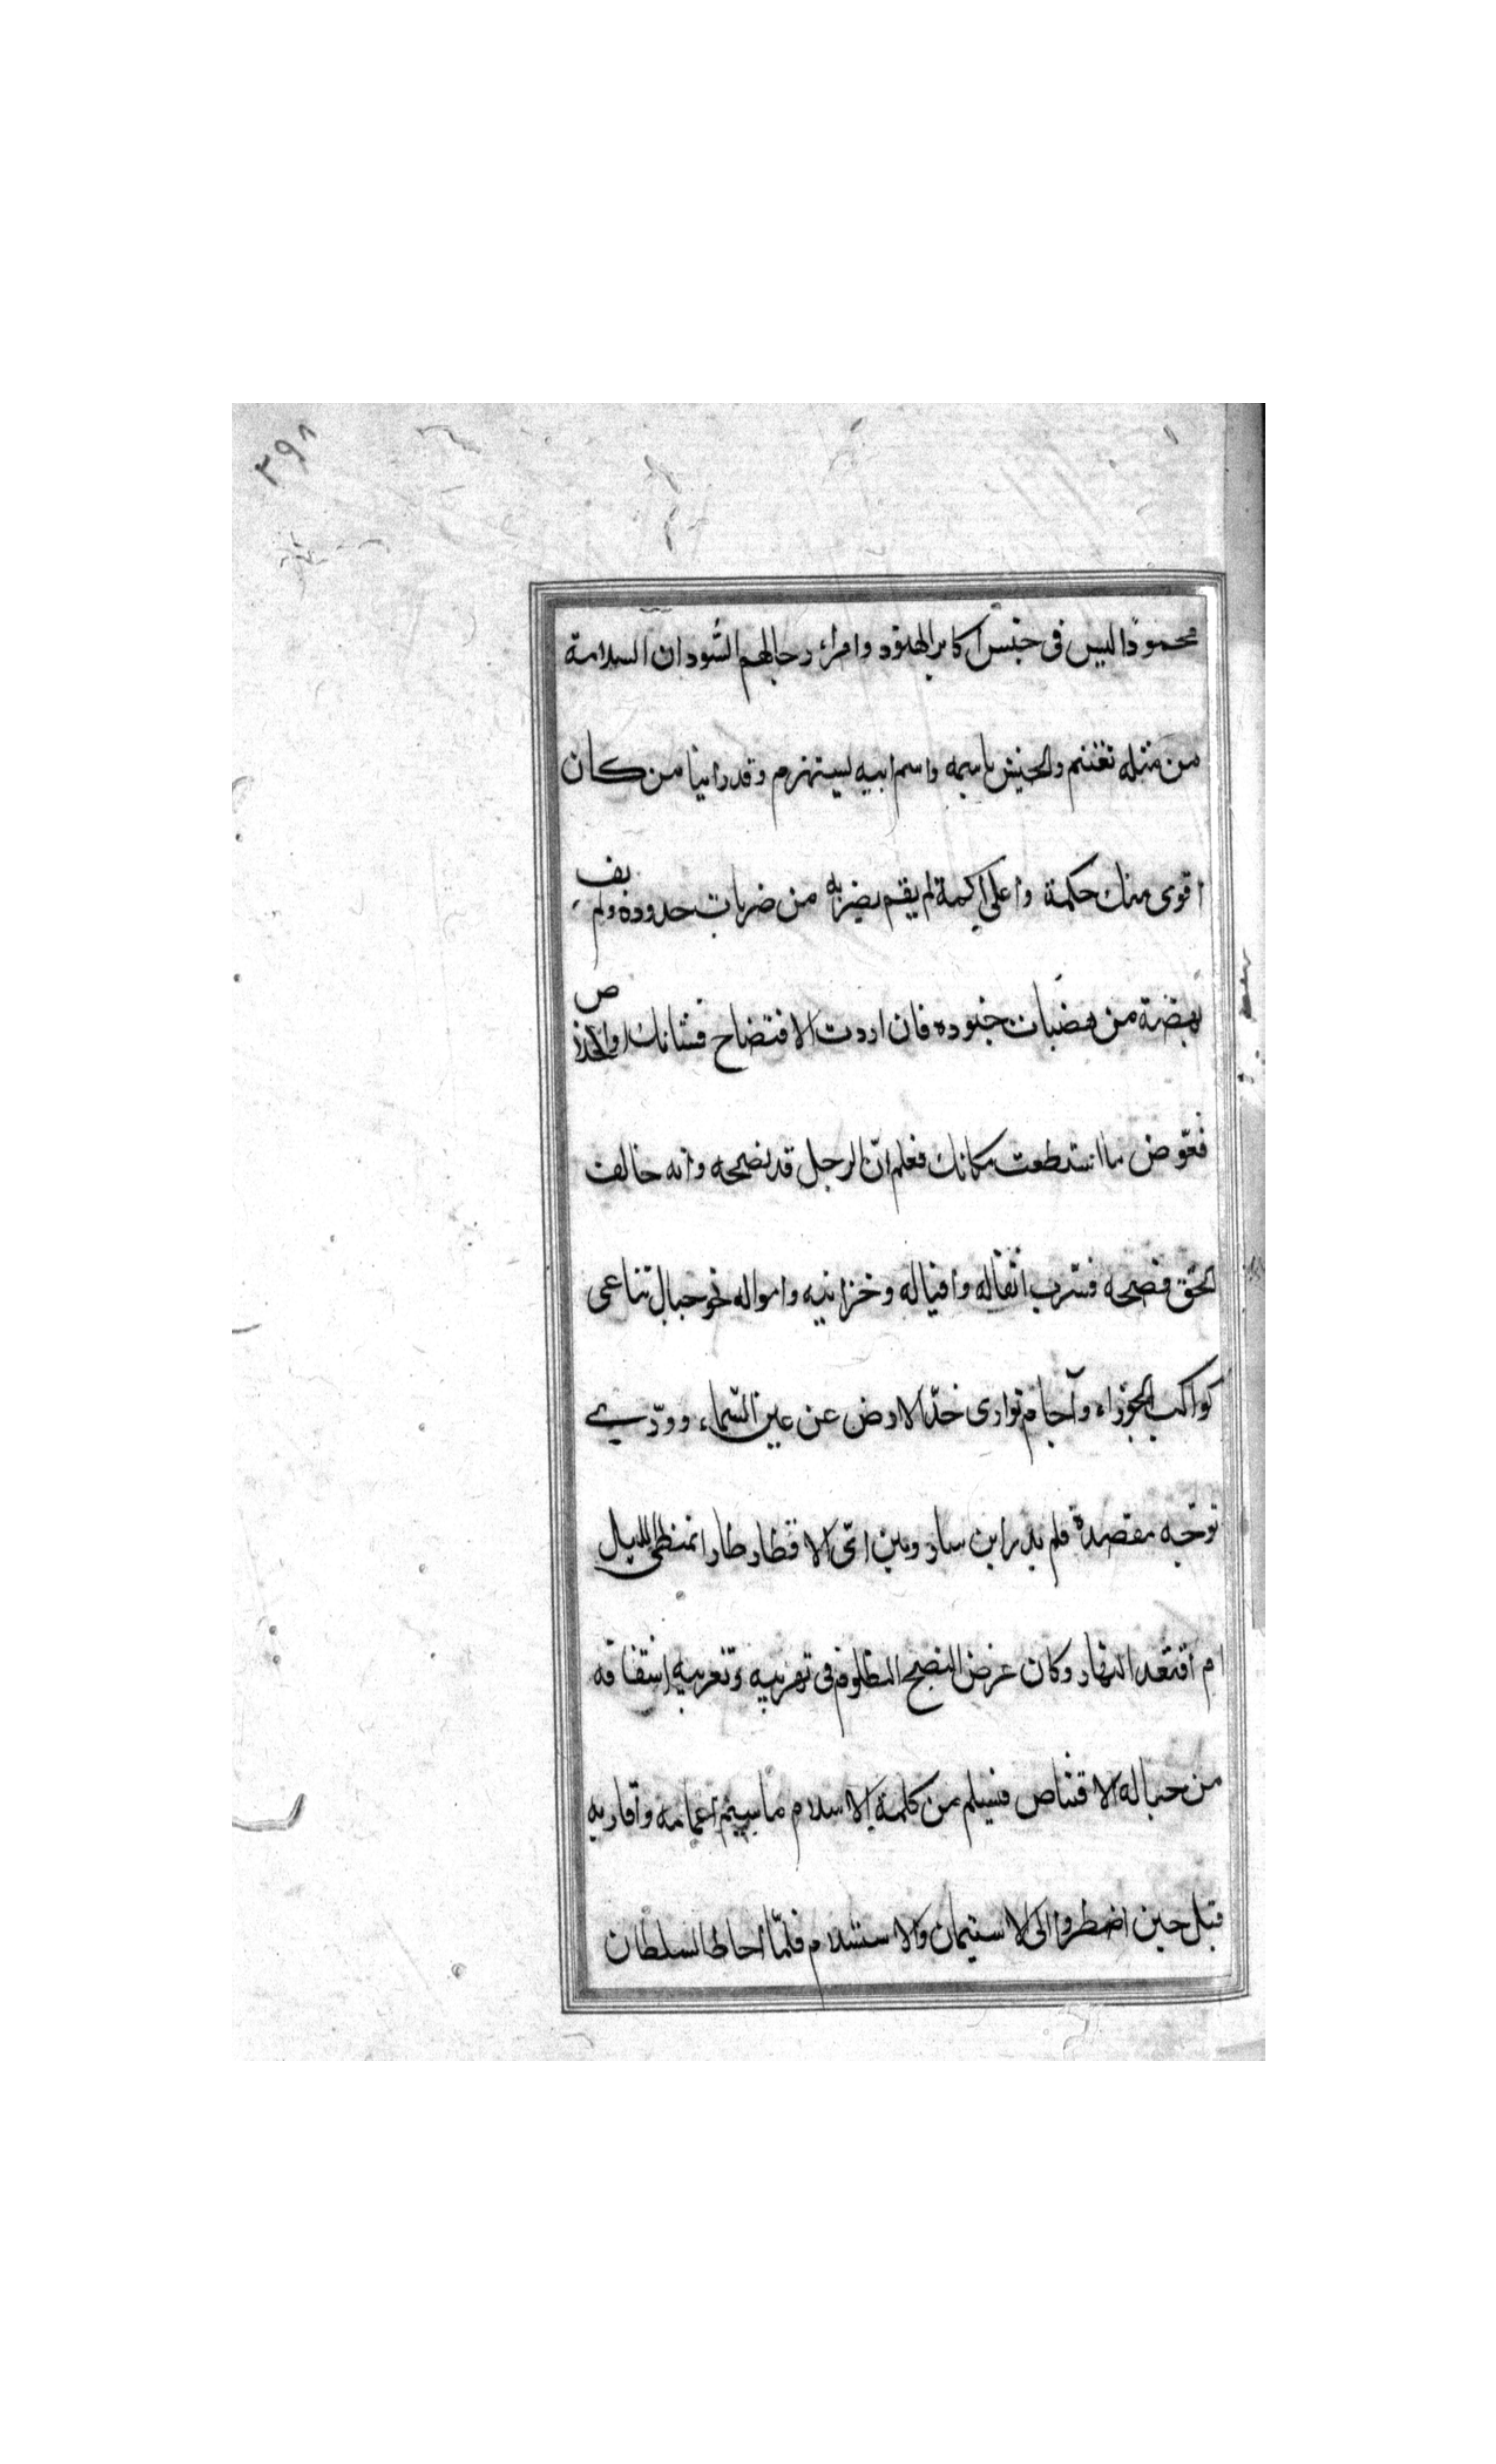 ٣٩٨
محمودًا ليس في جنس اكابر الهنود وامراء رجالهم السُّود ان السلامة
من مثله تغتنم والجيش باسمه واسم ابيه ليستهزم وقد راينا من كان
اقوى منك حكمة واعلى اكمة لم يقم بضربة من ضربات حدوده ولم يف
بهضبة من هضبات جنوده فان اردت الافتضاح فشانك او الخلاص
فعوّض ما استطعت مكانك فعلم انّ الرجل قد نصحه وانه خالف
الحق فضحه فسّرب اثقاله وافياله وخزاينه وامواله نحو جبال تناغى
كواكب الجوزاء وآجام توارى خدّ الارض عن عين السّماء وورّى
توجّه مقصده فلم يدر اين سار ومن اىّ الاقطار طار امتطى الليل
ام اقتعد النهار وكان غرض النصح في تهريبه وتغريبه اشفاقه
من حباله الاقتناص فيسلم من كلمة الاسلام ما سيم اعمامه واقاربه
قبل حين اضطروا الى الاستيمان والاستسلام فلمّا احاط السلطان